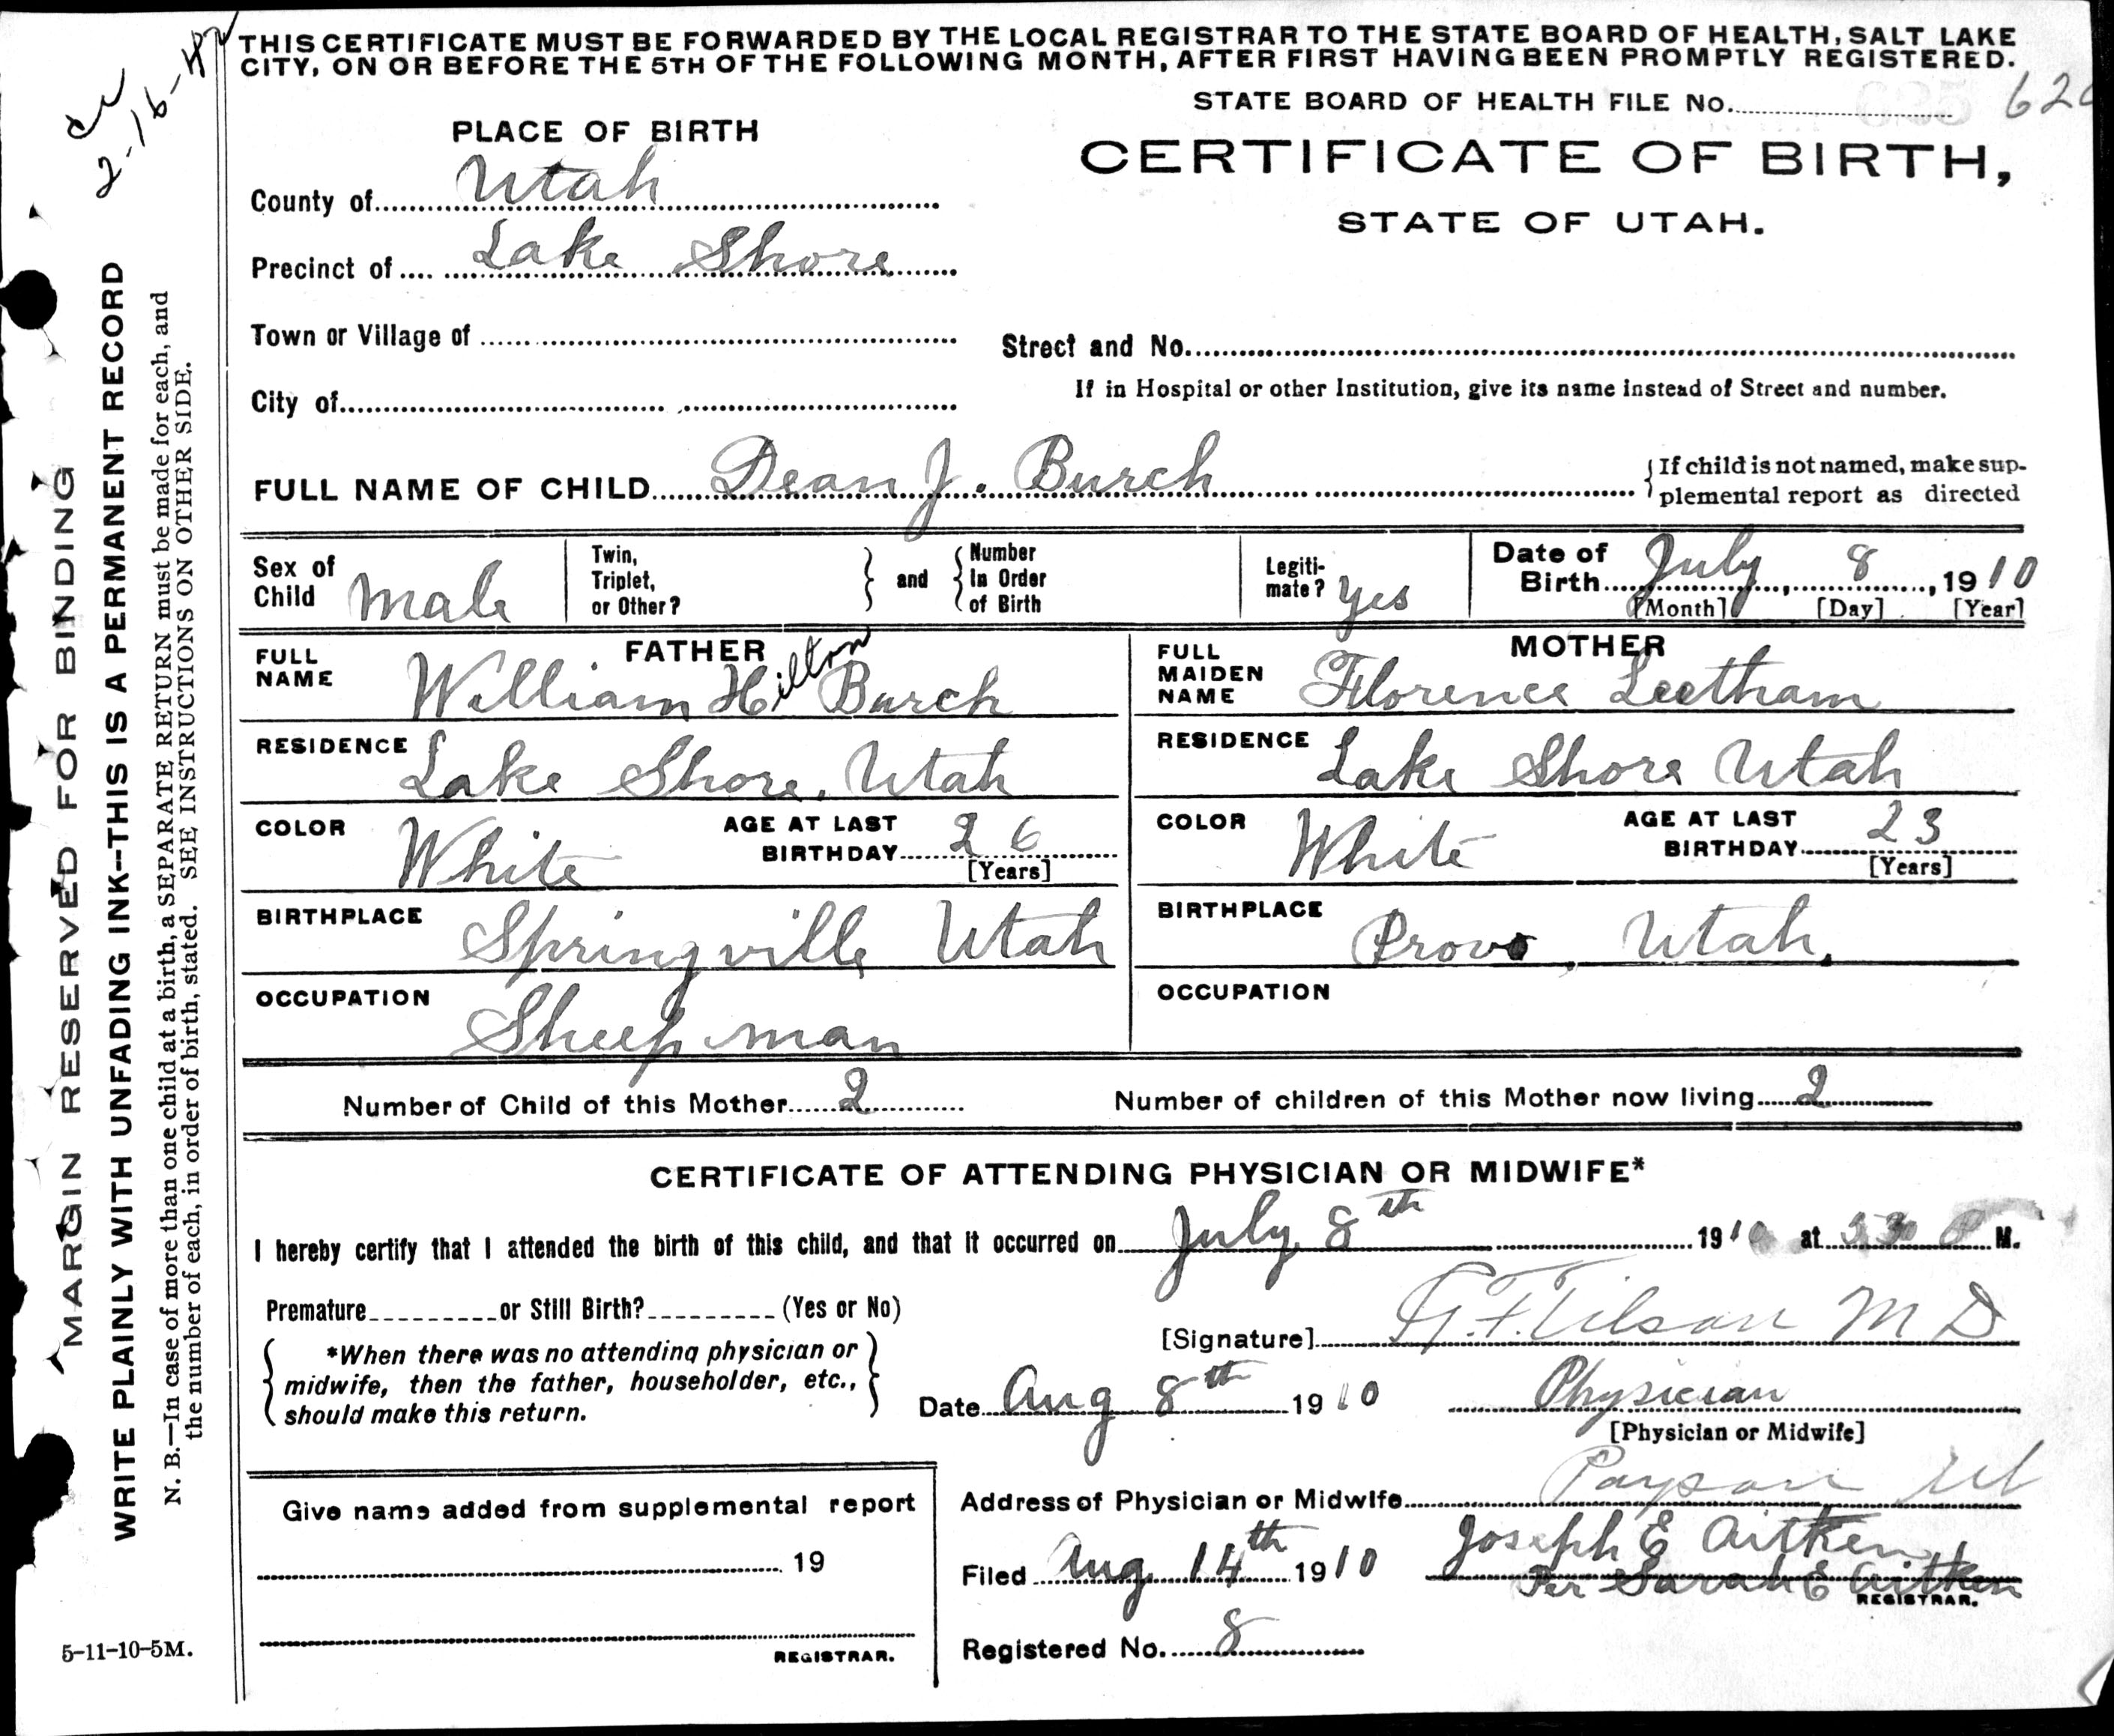 THIS CERTIFICATE MUST BE FORWARDED BY THE LOCAL REGISTRAR TO THE STATE BOARD OF HEALTH, SALT LAKE
CITY, ON OR BEFORE THE 5TH OF THE FOLLOWING MONTH, AFTER FIRST HAVING BEEN PROMPTLY REGISTERED.
2-16-42
STATE BOARD OF HEALTH FILE No.
PLACE OF BIRTH
CERTIFICATE OF BIRTH,
STATE OF UTAH.
County of Utah
Precinct of Lake Shore
Town or Village of
Street and No.
If in Hospital or other Institution, give its name instead of Street and number.
City of
FULL NAME OF CHILD Dean J. Burch
{If child is not named, make sup-
plemental report as directed
Sex of Child Male
Twin, Triplet, or Other? } and { Number In Order of Birth
Legiti-mate? Yes
Date of Birth July 8, 1910
[Month] [Day] [Year]
FATHER
FULL NAME William Hilton Burch
RESIDENCE Lake Shore, Utah
COLOR White AGE AT LAST BIRTHDAY 26
[Years]
BIRTHPLACE Springville Utah
OCCUPATION Sheep man
MOTHER
FULL MAIDEN NAME Florence Leetham
RESIDENCE Lake Shore Utah
COLOR White AGE AT LAST BIRTHDAY 23
[Years]
BIRTHPLACE Provo, Utah.
OCCUPATION
Number of Child of this Mother 2
Number of children of this Mother now living 2
CERTIFICATE OF ATTENDING PHYSICIAN OR MIDWIFE*
I hereby certify that I attended the birth of this child, and that it occurred on July 8th 1910 at M.
Premature or Still Birth? (Yes or No)
[Signature] Tilson M D
*When there was no attending physician or
midwife, then the father, householder, etc.,
should make this return.
Date Aug 8th 1910 Physician
[Physician or Midwife]
Address of Physician or Midwife Payson Ut
Give name added from supplemental report
19
REGISTRAR.
Filed Aug 14th 1910 Joseph E Aitken
Per Sarah E Aitken
REGISTRAR.
Registered No. 8
MARGIN RESERVED FOR BINDING
WRITE PLAINLY WITH UNFADING INK--THIS IS A PERMANENT RECORD
N. B.—In case of more than one child at a birth, a SEPARATE RETURN must be made for each, and
the number of each, in order of birth, stated. SEE INSTRUCTIONS ON OTHER SIDE.
5-11-10-5M.